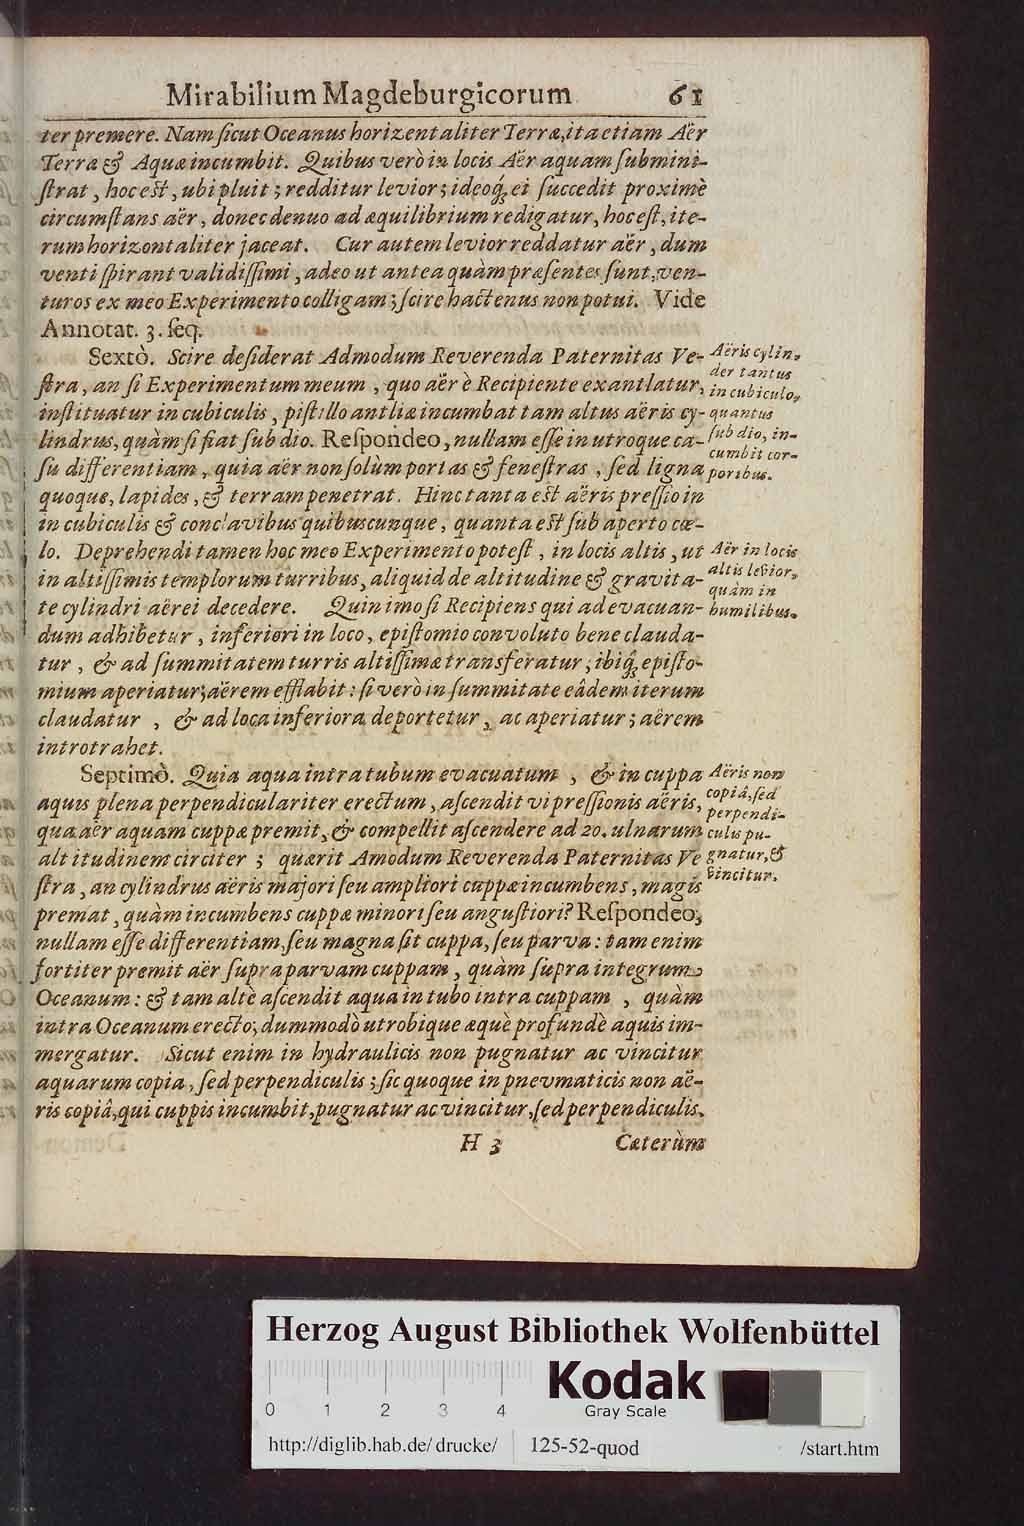 Mirabilium Magdeburgicorum 61
ter premere. Nam ſicut Oceanus horizentaliter Terræ, ita etiam Aër
Terræ & Aquæ incumbit. Quibus verò in locis Aër aquam ſubmini-
ſtrat, hoc eſt, ubi pluit; redditur levior; ideoq́; ei ſuccedit proximè
circumſtans aër, donec denuo ad æquilibrium redigatur, hoc eſt, ite-
rum horizontaliter jaceat. Cur autem levior reddatur aër, dum
venti ſpirant validiſſimi, adeo ut antea quàm præſentes ſunt, ven-
turos ex meo Experimento colligam; ſcire hactenus non potui. Vide
Annotat. 3. ſeq.
Sextò. Scire deſiderat Admodum Reverenda Paternitas Ve-
ſtra, an ſi Experimentum meum, quo aër è Recipiente exantlatur,
inſtituatur in cubiculis, piſtillo antliæ incumbat tam altus aëris cy-
lindrus, quàm ſi fiat ſub dio. Reſpondeo, nullam eſſe in utroque ca-
ſu differentiam, quia aër non ſolùm portas & feneſtras, ſed ligna
quoque, lapides, & terram penetrat. Hinc tanta eſt aëris preſſio in
in cubiculis & conclavibus quibuscunque, quanta eſt ſub aperto cœ-
lo. Deprehendi tamen hoc meo Experimento poteſt, in locis altis, ut
in altiſſimis templorum turribus, aliquid de altitudine & gravita-
te cylindri aërei decedere. Quin imo ſi Recipiens qui ad evacuan-
dum adhibetur, inferiori in loco, epiſtomio convoluto bene clauda-
tur, & ad ſummitatem turris altiſſimæ transferatur, ibiq́; epiſto-
mium aperiatur; aërem efflabit: ſi verò in ſummitate eâdem iterum
claudatur, & ad loca inferiora deportetur, ac aperiatur; aërem
introtrahet.
Aëris cylin-
der tantus
in cubiculo,
quantus
ſub dio, in-
cumbit cor-
poribus.
Aër in locis
altis levior,
quàm in
humilibus.
Septimò. Quia aqua intra tubum evacuatum, & in cuppa
aquis plena perpendiculariter erectum, aſcendit vi preſſionis aëris,
qua aër aquam cuppæ premit, & compellit aſcendere ad 20. ulnarum
altitudinem circiter; quærit Amodum Reverenda Paternitas Ve
ſtra, an cylindrus aëris majori ſeu ampliori cuppæ incumbens, magis
premat, quàm incumbens cuppæ minori ſeu anguſtiori? Reſpondeo,
nullam eſſe differentiam, ſeu magna ſit cuppa, ſeu parva: tam enim
fortiter premit aër ſupra parvam cuppam, quàm ſupra integrum
Oceanum: & tam altè aſcendit aqua in tubo intra cuppam, quàm
intra Oceanum erecto; dummodò utrobique æquè profundè aquis im-
mergatur. Sicut enim in hydraulicis non pugnatur ac vincitur
aquarum copia, ſed perpendiculis; ſic quoque in pnevmaticis non aë-
ris copiâ, qui cuppis incumbit, pugnatur ac vincitur, ſed perpendiculis.
Aëris non
copiâ, ſed
perpendi-
culis pu-
gnatur, &
vincitur.
H 3 Cæterùm
Herzog August Bibliothek Wolfenbüttel
Kodak
Gray Scale
0 1 2 3 4
http://diglib.hab.de/drucke/ 125-52-quod /start.htm